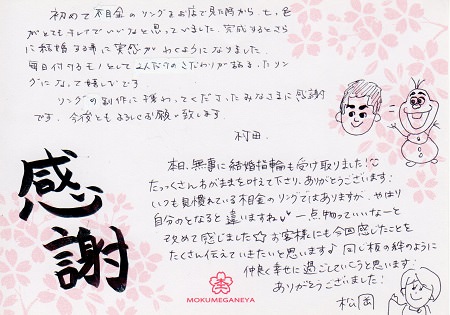 初めて杢金のリングをお店で見た時から、色
がとてもキレイでいいなと思っていました。完成するとさら
に結婚する事に実感がわくようになりました。
毎日付けるモノとして2人だけのこだわりが詰まったリン
グになって嬉しいです
リングの制作に携わってくださったみなさまに感謝
です。今後ともよろしくお願い致します。
村田
感謝
本日、無事に結婚指輪も受け取りました!
たっくさんわがままを叶えて下さり、ありがとうございます!
いつも見慣れている杢金のリングではありますが、やはり
自分のとなると違いますね♪ 一点物っていいなーと
改めて感じました☆お客様にも今回感じたことを
たくさん伝えていきたいと思います♪ 同じ板の絆のように
仲良く幸せに過ごしていこうと思います!
ありがとうございました!
松岡
MOKUMEGANEYA